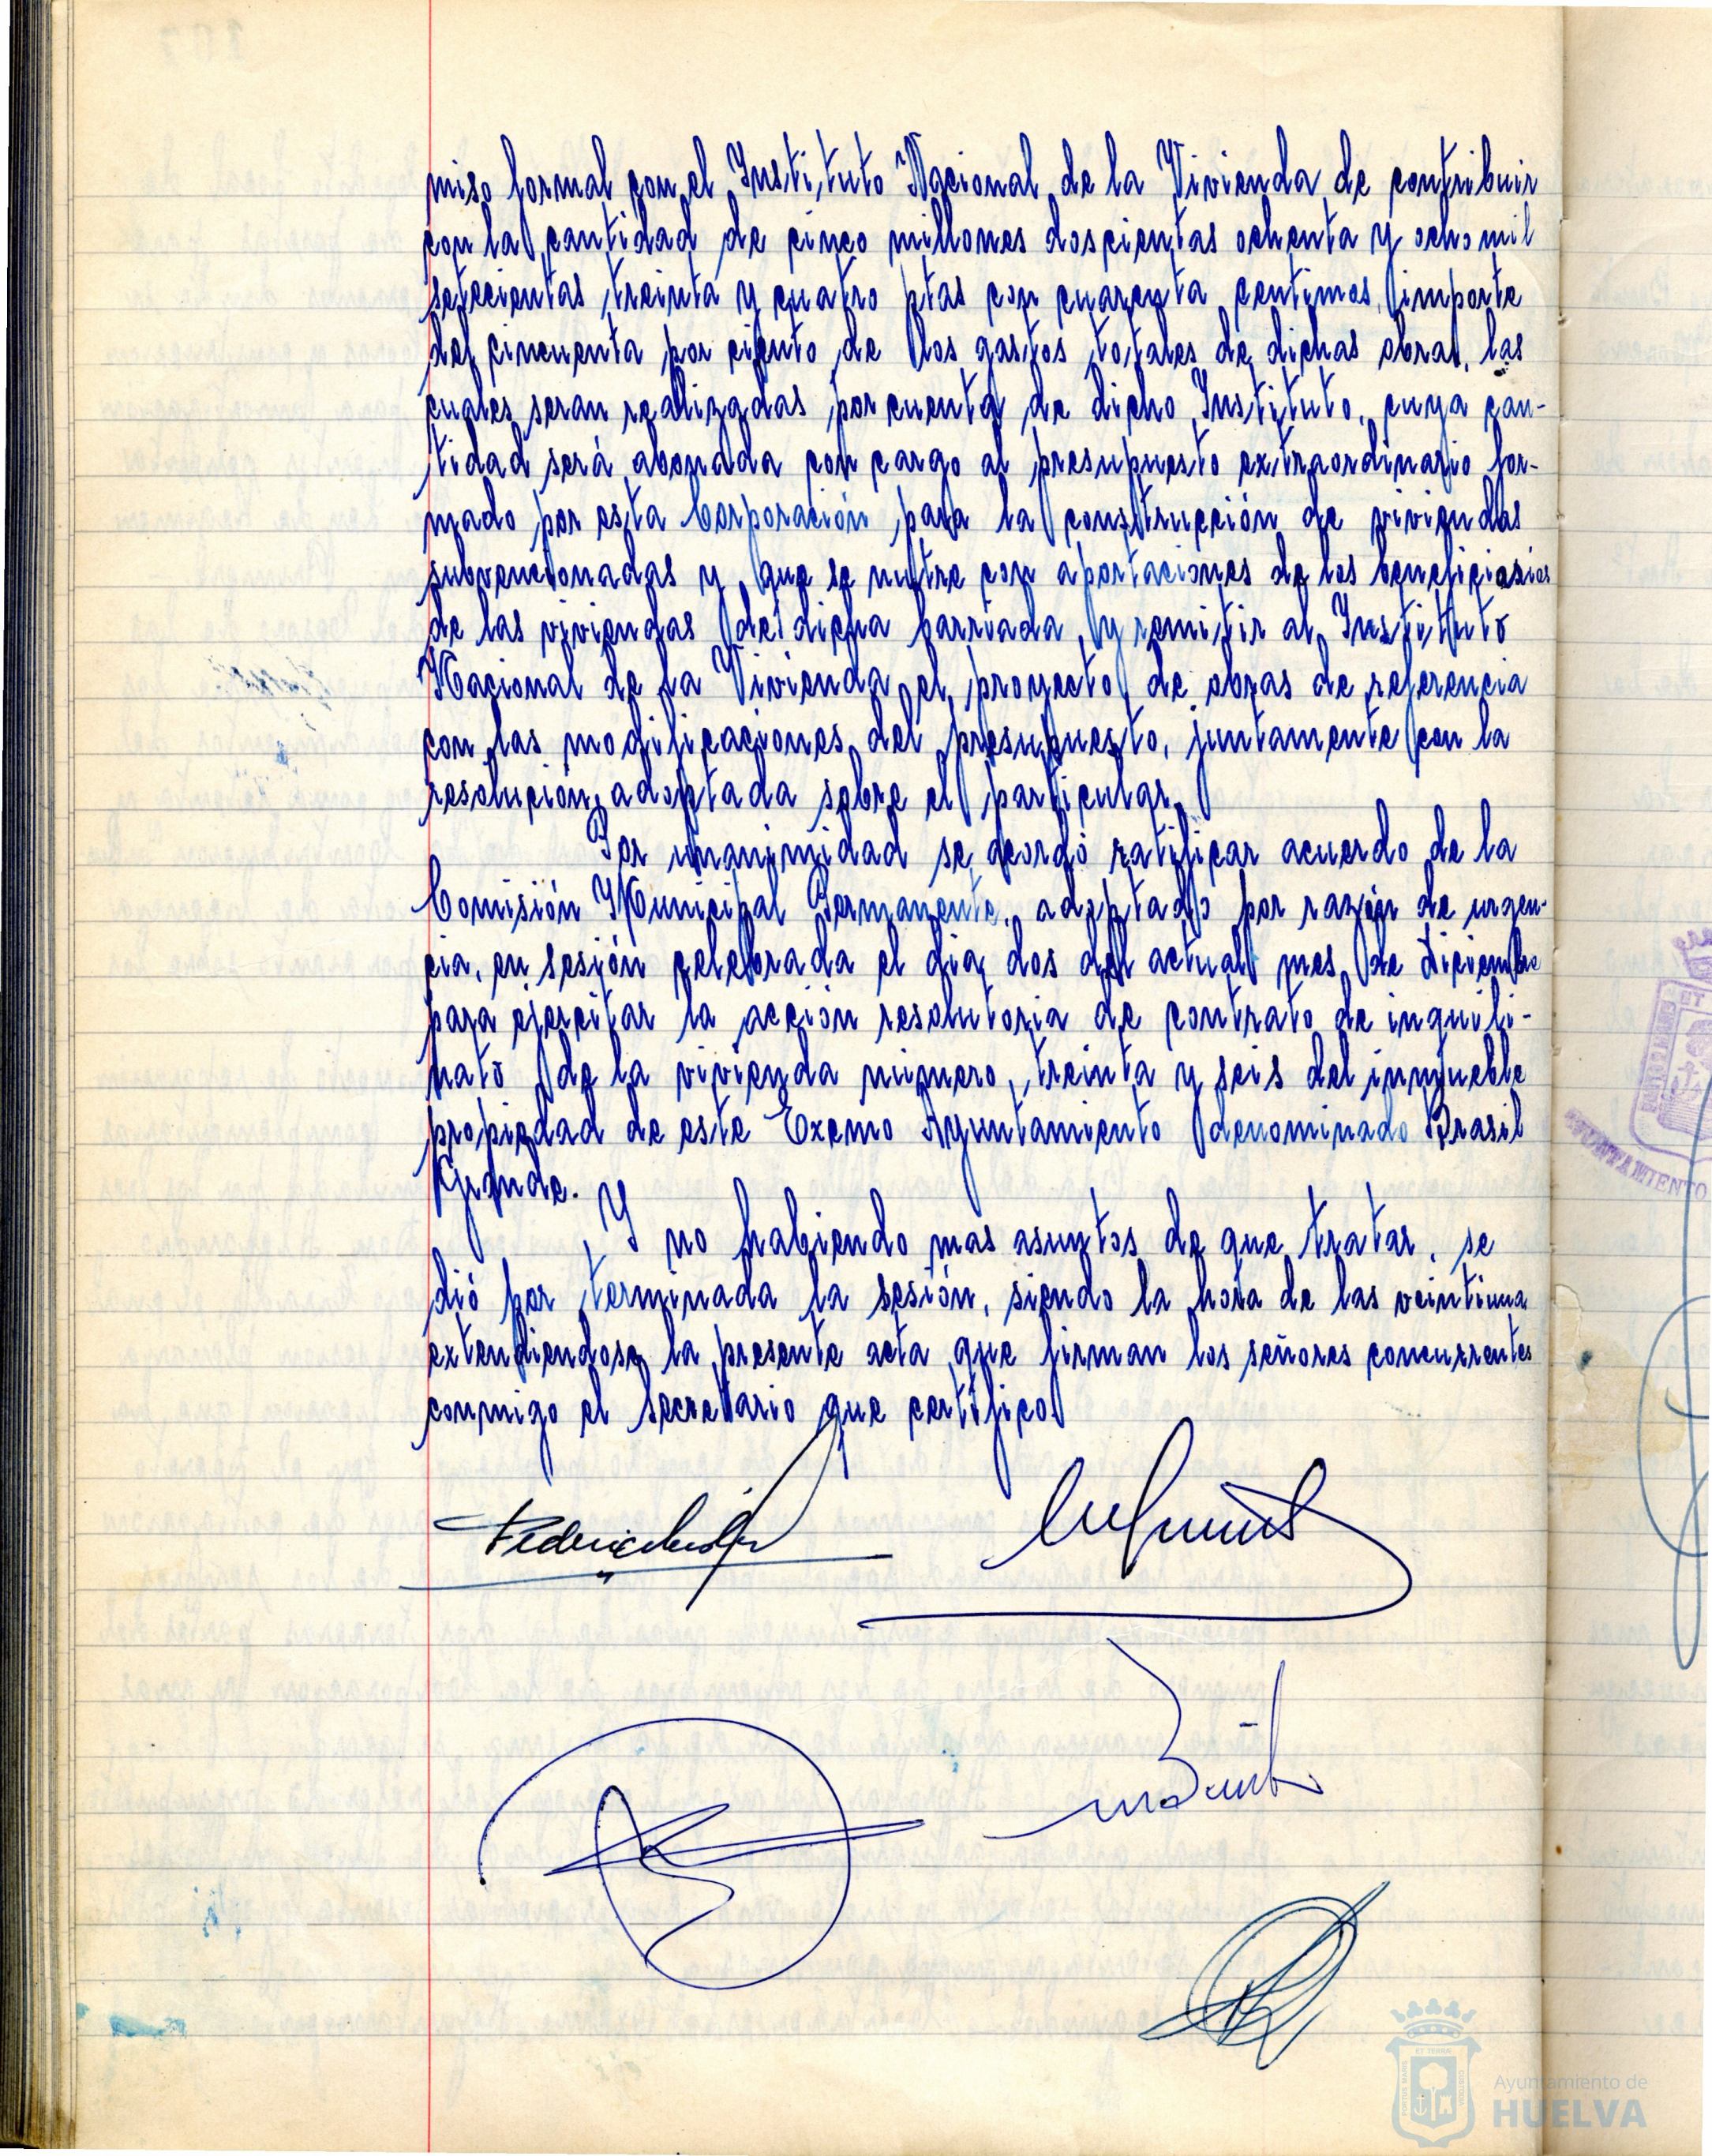 miso formal con el Instituto Nacional de la Vivienda de contribuir
con la cantidad de cinco millones doscientas ochenta y ocho mil
setecientas treinta y cuatro ptas con cuarenta centimos, importe
del cincuenta por ciento de los gastos totales de dichas obras, las
cuales seran realizadas por cuenta de dicho Instituto, cuya can-
tidad será abonada con cargo al presupuesto extraordinario for-
mado por esta Corporación para la construcción de viviendas
subvencionadas y que se nutre con aportaciones de los beneficiarios
de las viviendas de dicha barriada, y remitir al Instituto
Nacional de la Vivienda el proyecto de obras de referencia
con las modificaciones del presupuesto, juntamente con la
resolución adoptada sobre el particular.
Por unanimidad se acordó ratificar acuerdo de la
Comisión Municipal Permanente, adoptado por razón de urgen-
cia, en sesión celebrada el dia dos del actual mes de Diciembre
para ejercitar la acción resolutoria de contrato de inquili-
nato de la vivienda número treinta y seis del inmueble
propiedad de este Excmo Ayuntamiento denominado Brasil
Grande.
Y no habiendo mas asuntos de que tratar, se
dió por terminada la sesión, siendo la hora de las veintiuna
extendiendose la presente acta que firman los señores concurrentes
conmigo el secretario que certifico.
AYUNTAMIENTO
Ayuntamiento de
HUELVA